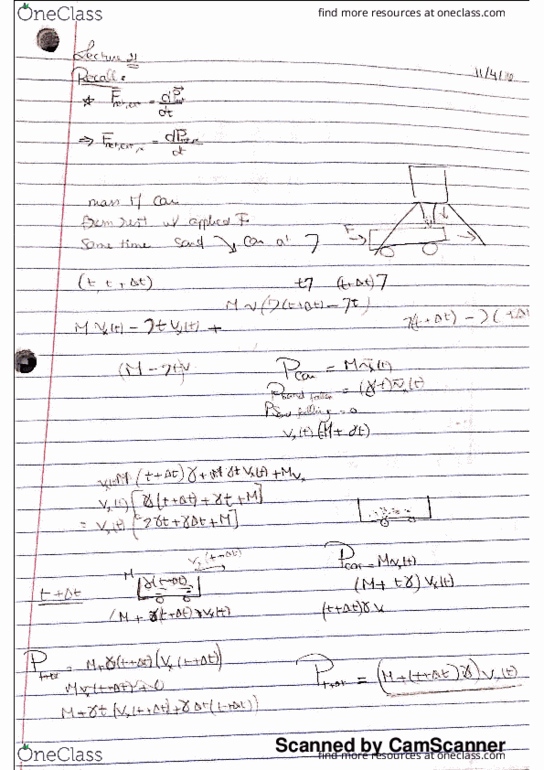 OneClass
find more resources at oneclass.com
Lecture 21
11/4/10
Recall:
* F⃗net,ext = dP⃗/dt
⇒ Fnet,ext,x = dP/dt
mass of car
from rest w/ applied F
F
Same time sand ↘ car at γ
(t, t + Δt)
tγ (t+Δt)γ
M v (γ(t+Δt) - γt)
M Vx(t) - γt Vx(t) +
γ(t+Δt) - γ(
(M - γt)v
Pcar = M vx(t)
Psand fallen = (γt) vx(t)
Psand falling = 0
Vx(t) (M + γt)
M (t+Δt) γ + γt Vx(t) + MVx
Vx(t) [γ(t+Δt) + γt + M]
= Vx(t) [2γt + γΔt + M]
t + Δt
M
γ(t+Δt)
Vx(t+Δt)
(M + γ(t+Δt)) Vx(t)
Pcar = MVx(t)
(M + tγ) Vx(t)
(t+Δt)γ Vx
Pt+Δt = M+γ(t+Δt)(Vx(t+Δt))
MVx(t+Δt)
M+γt (Vx(t+Δt)+γΔt(t+Δt))
Pt+Δt = (M+(t+Δt)γ) Vx(t)
Scanned by CamScanner
OneClass
find more resources at oneclass.com